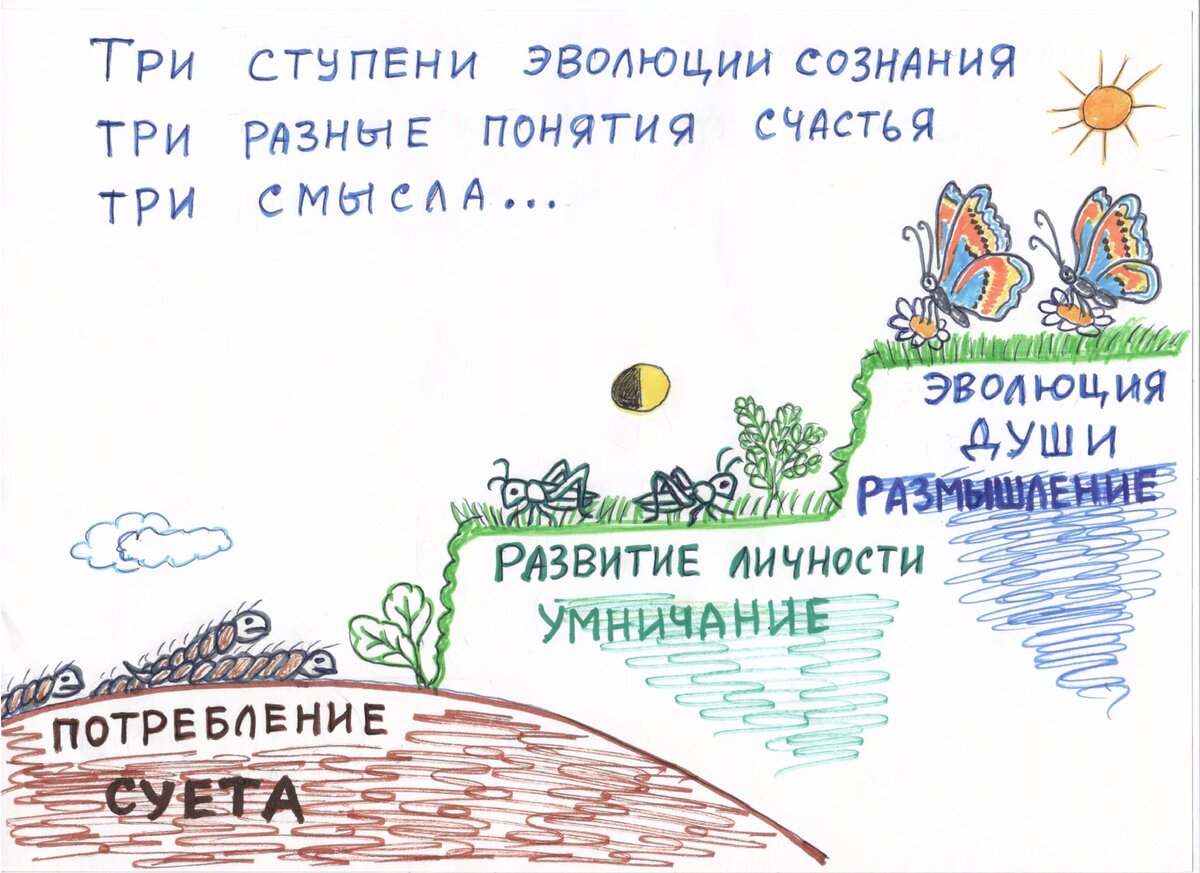 ТРИ СТУПЕНИ ЭВОЛЮЦИИ СОЗНАНИЯ
ТРИ РАЗНЫЕ ПОНЯТИЯ СЧАСТЬЯ
ТРИ СМЫСЛА...
ЭВОЛЮЦИЯ
ДУШИ
РАЗМЫШЛЕНИЕ
РАЗВИТИЕ ЛИЧНОСТИ
УМНИЧАНИЕ
ПОТРЕБЛЕНИЕ
СУЕТА